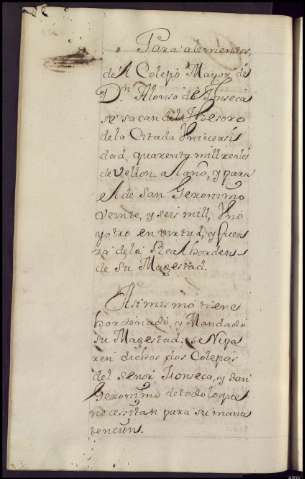 Para alimentos,
de el Colegio Mayor de
Dn. Alonso de Fonseca
se sacan del Thesoro
de la Citada Univercsi
dad, quarenta mill reales
de vellon al año, y para
el de San Geronimo
veinte, y seis mill, Uno
y otro en virtud, y fuer
za de la Real horden de
de Su Magestad.
Asimismo tiene
hordenado, y Mandado
Su Magestad, se
ren dichos Colegios
del señor Fonseca, y San
Geronimo de todo lo que
necesitan para su manu
tencion.